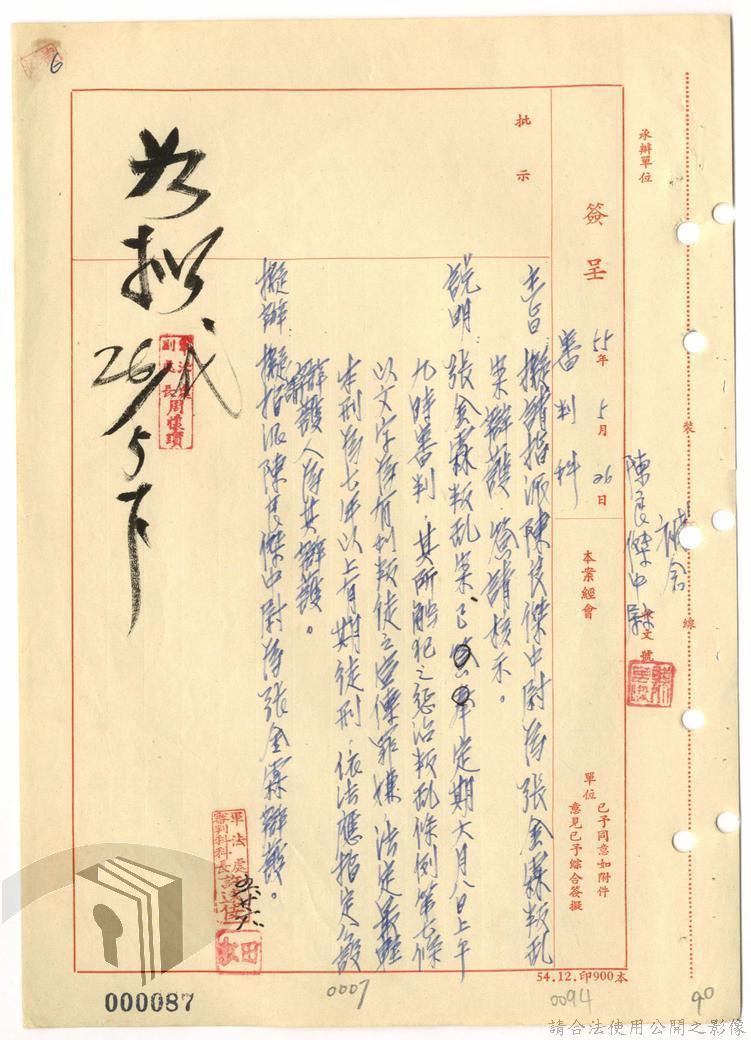 6
承辦單位
簽呈
55年5月26日
審判科
裝
線
陳良傑中尉
來文號
批示
本案經會
單位已予同意如附件
意見已予綜合簽擬
主旨：擬請指派陳良傑中尉為張金霖叛亂
案辯護，簽請核示。
說明：張金霖叛亂案，已定期六月八日上午
九時審判，其所觸犯之懲治叛亂條例第七條
以文字為有利叛徒之宣傳罪嫌，法定最輕
本刑為七年以上有期徒刑，依法應指定公設
辯護人為其辯護。
擬辦：擬請指派陳良傑中尉為張金霖辯護。
軍法處
審判科科長
軍法處
副處長周懷瓊
為擬
26/5下
54.12.印900本
000087
0007
0094
90
請合法使用公開之影像